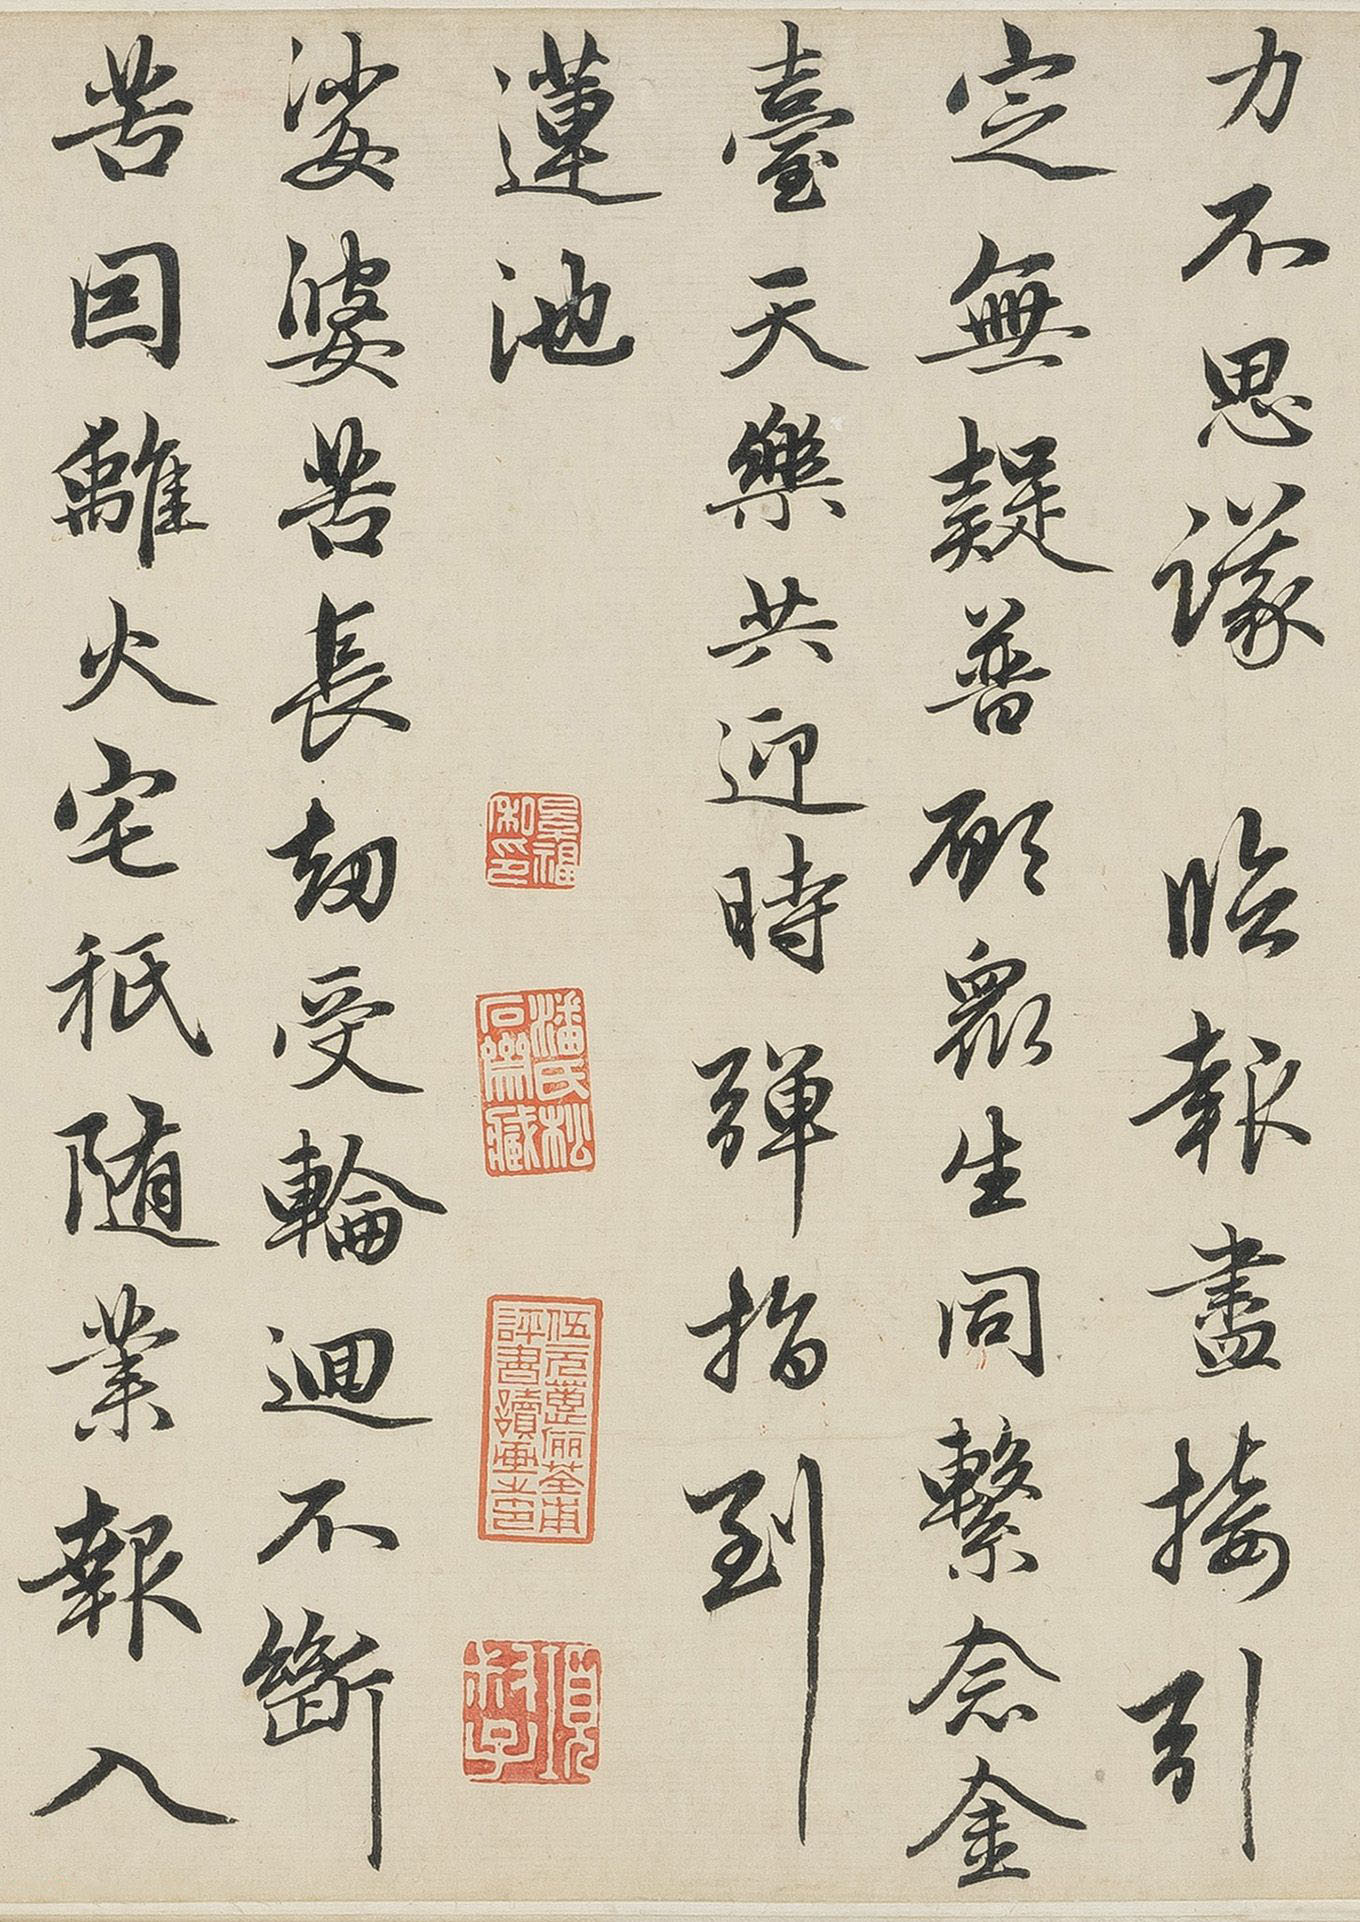 力不思議臨報盡接引
定無疑普願眾生同繫念金
臺天樂共迎時彈指到
蓮池
娑婆苦長劫受輪迴不斷
苦因離火宅秖隨業報入
潘氏松石齋藏
伍元蕙儷荃甫評書讀畫之印